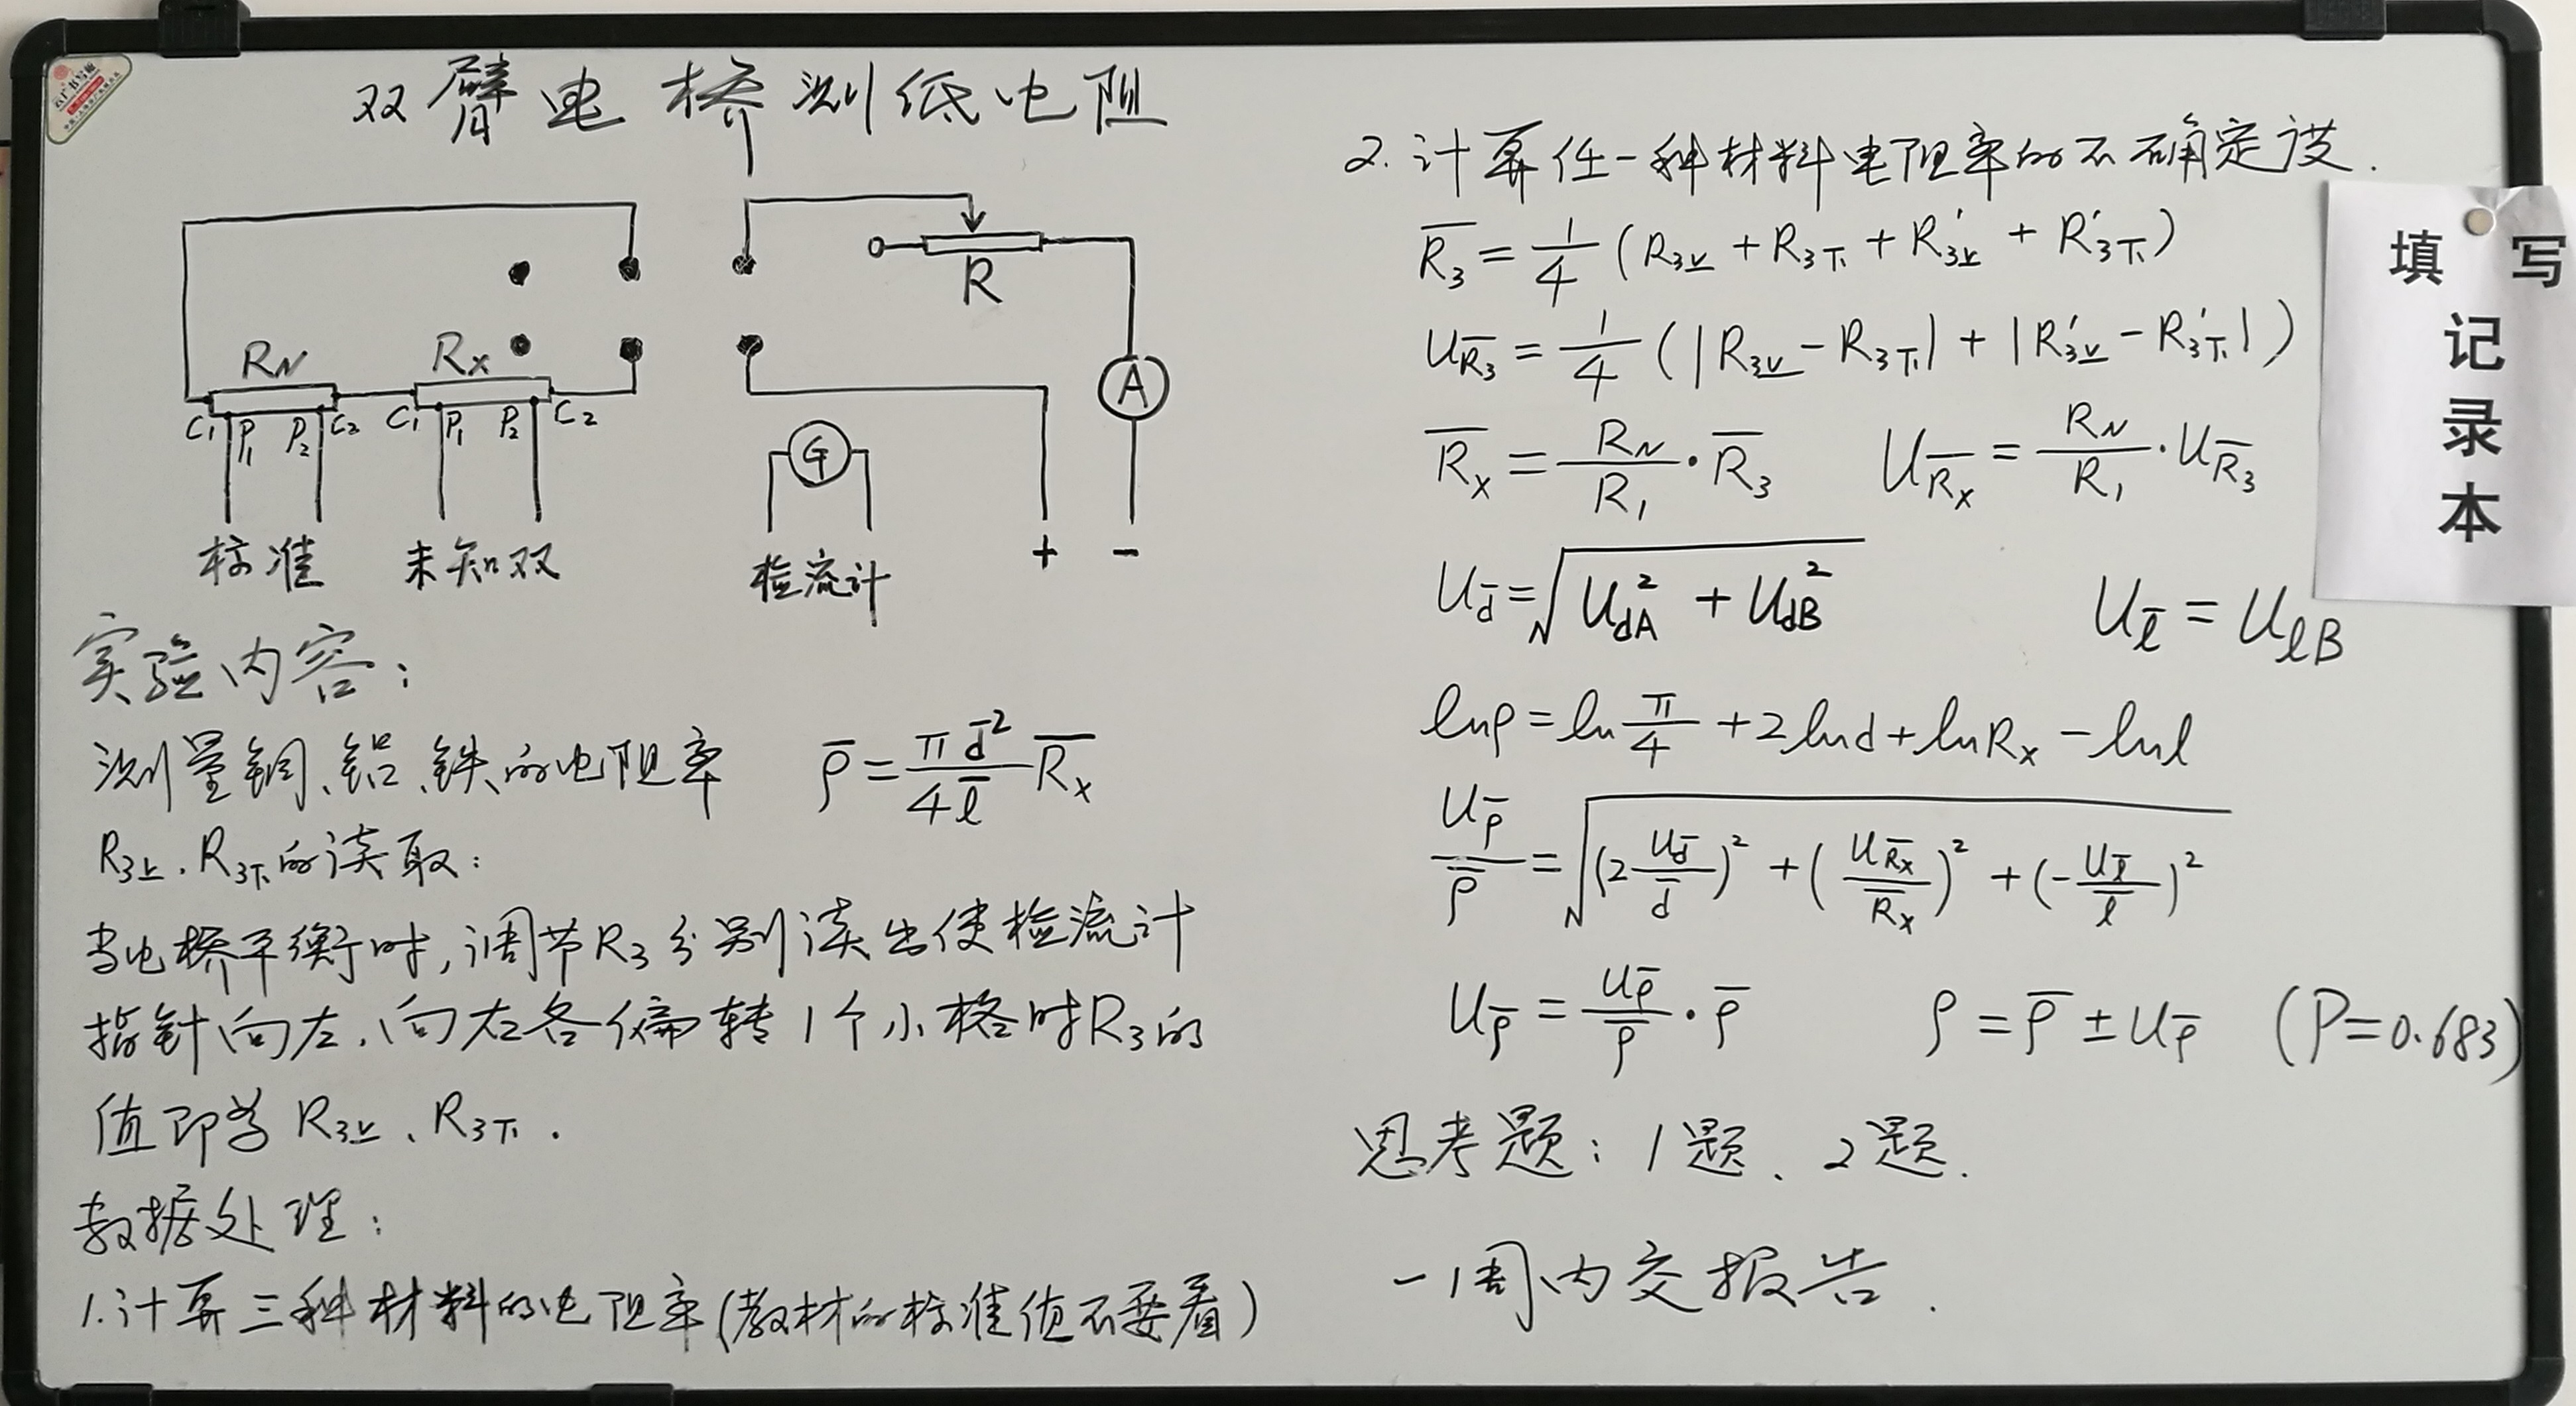 双臂电桥测低电阻
R
A
R_N
R_x
C₁ P₁ P₂ C₂ C₁ P₁ P₂ C₂
G
标准 未知双 检流计 + −
实验内容：
测量铜、铝、铁的电阻率 ρ̄ = (π d̄² / 4 l̄) R̄_x
R₃上、R₃下的读取：
当电桥平衡时，调节R₃分别读出使检流计
指针向左、向右各偏转1个小格时R₃的
值即为 R₃上、R₃下.
数据处理：
1.计算三种材料的电阻率（教材的标准值不要看）
2.计算任一种材料电阻率的不确定度.
R̄₃ = 1/4 (R₃上 + R₃下 + R′₃上 + R′₃下)
U_R̄₃ = 1/4 (|R₃上 − R₃下| + |R′₃上 − R′₃下|)
R̄_x = R_N/R₁ · R̄₃ U_R̄x = R_N/R₁ · U_R̄₃
U_d̄ = √(U_dA² + U_dB²) U_l̄ = U_lB
lnρ = ln π/4 + 2lnd + lnR_x − lnl
U_ρ̄/ρ̄ = √((2 U_d̄/d̄)² + (U_R̄x/R̄_x)² + (− U_l̄/l̄)²)
U_ρ̄ = U_ρ̄/ρ̄ · ρ̄ ρ = ρ̄ ± U_ρ̄ (P=0.683)
思考题：1题、2题.
一周内交报告.
填写
记
录
本